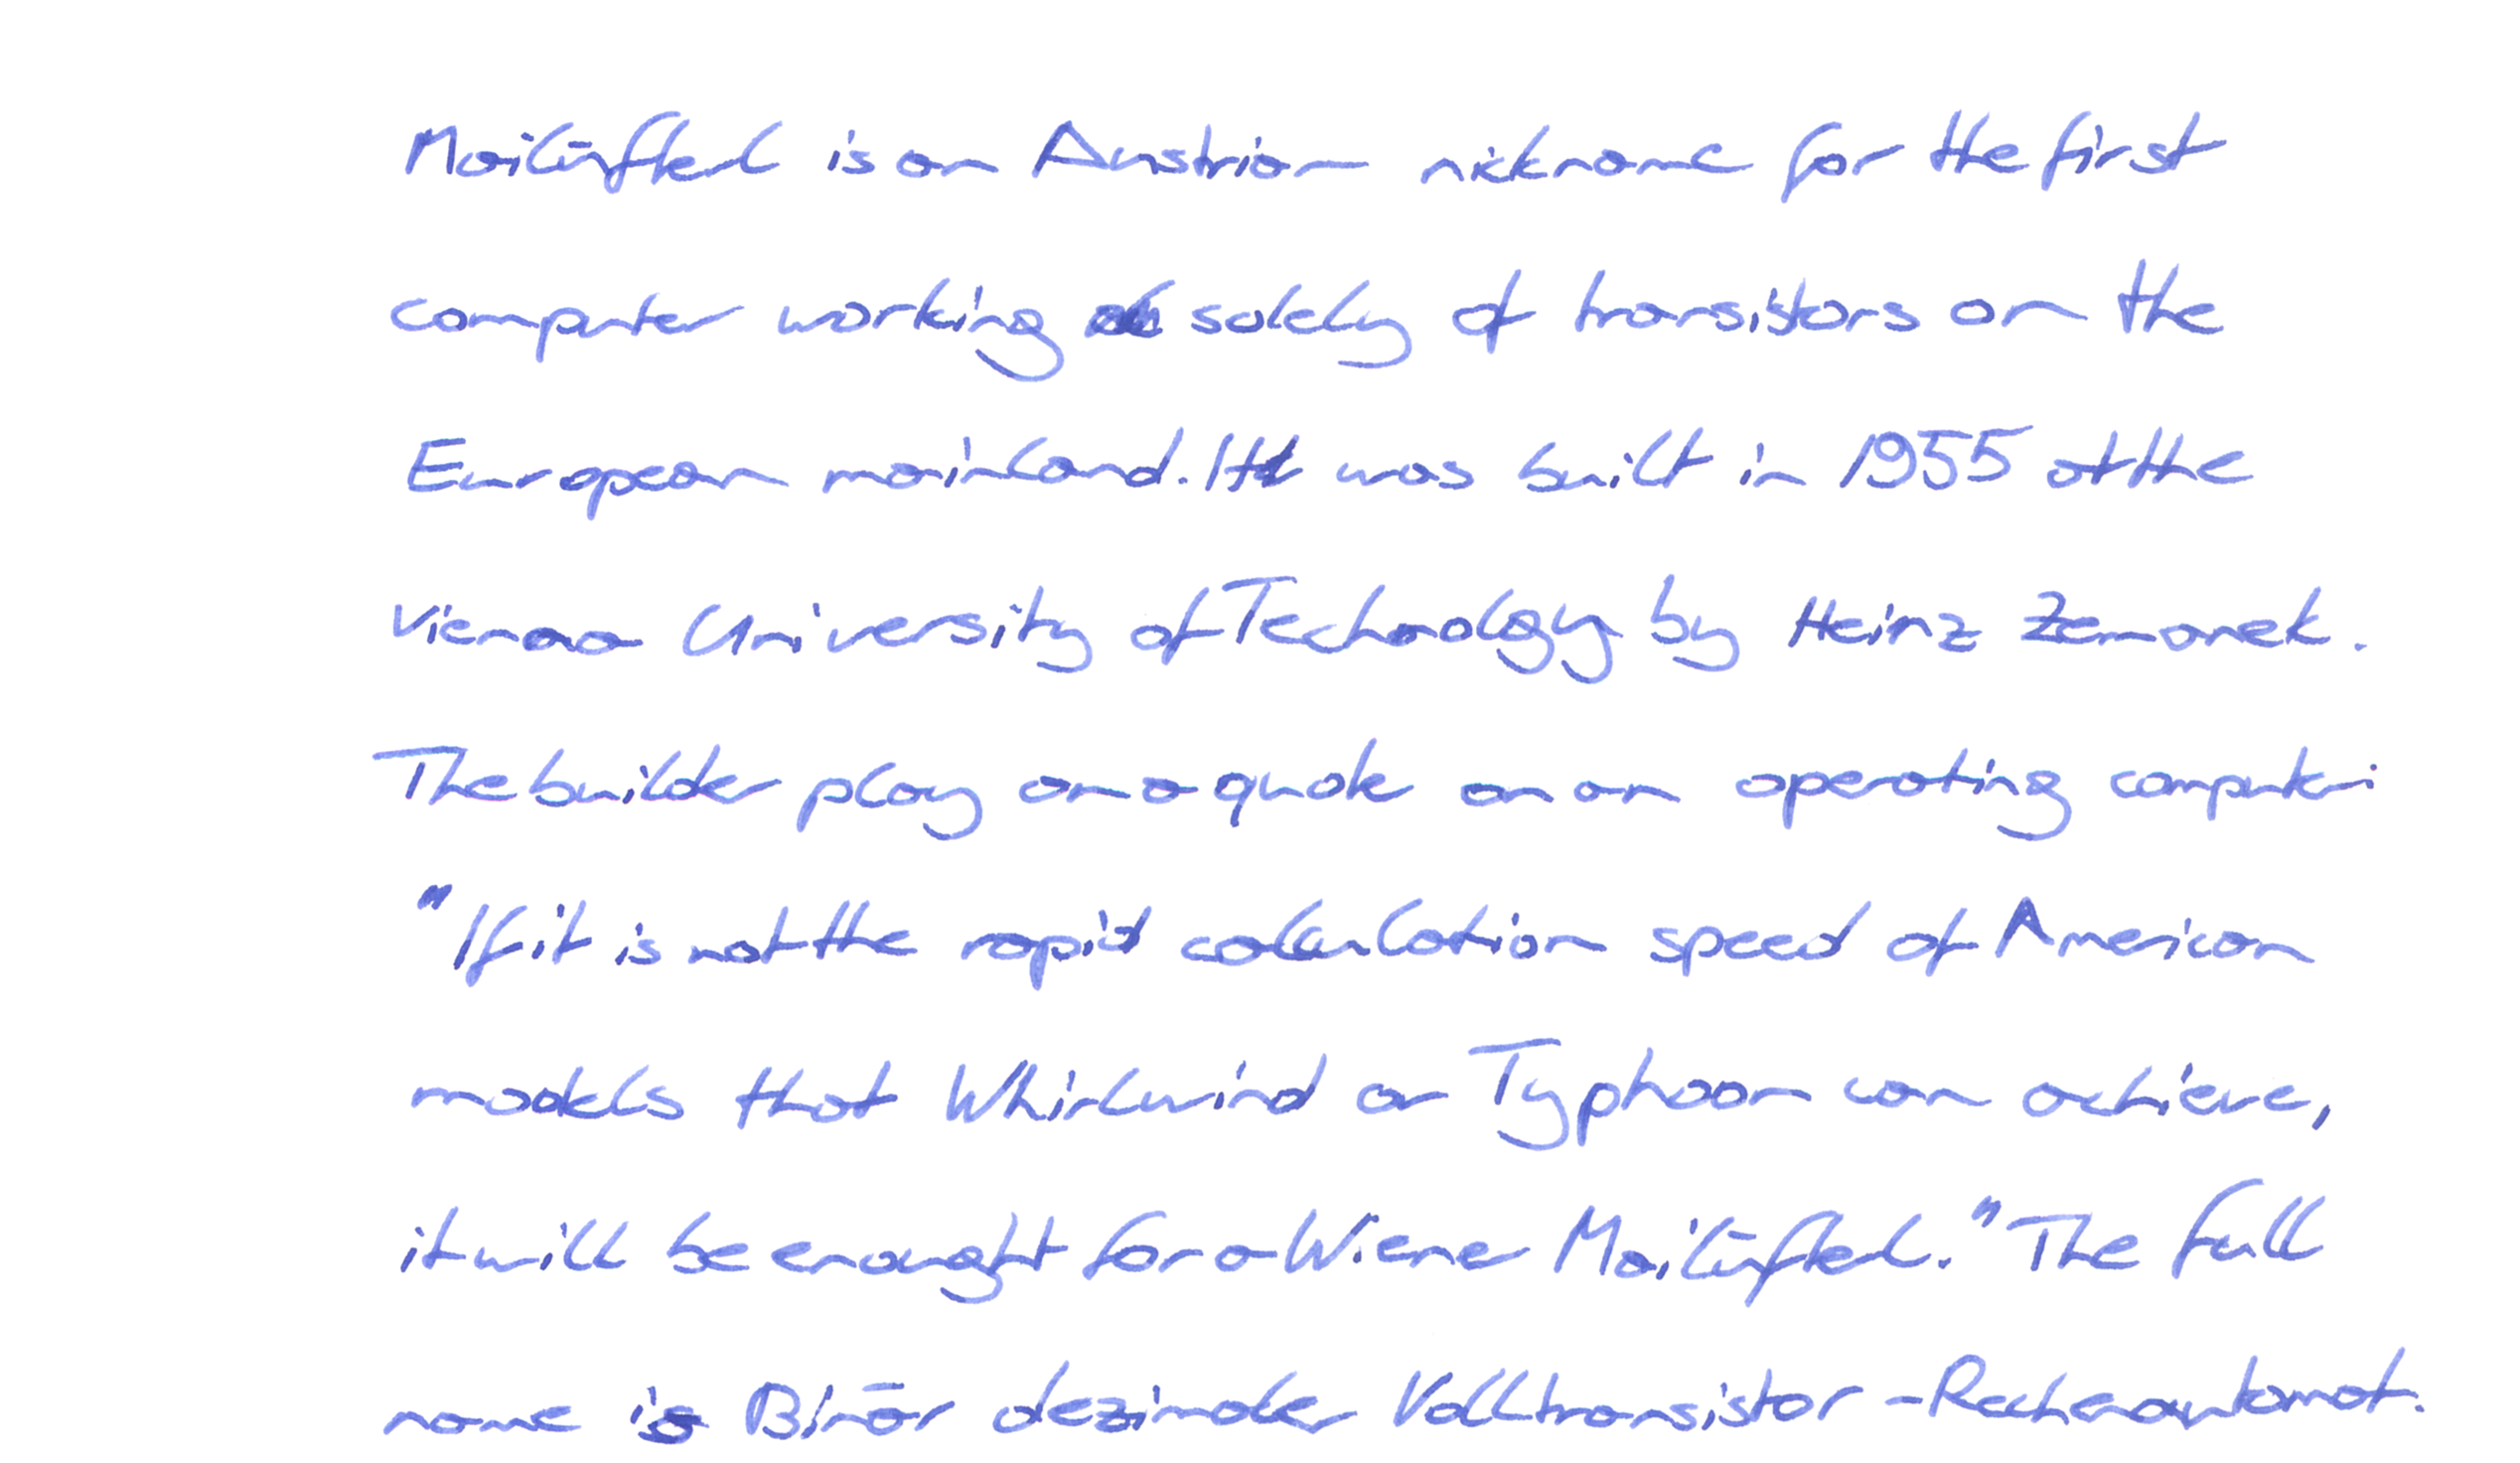 Mailüfterl is an Austrian nickname for the first
computer working solely of transistors on the
European mainland. It was built in 1955 at the
Vienna University of Technology by Heinz Zemanek.
The builder play on a quote on an operating computer:
"If it is not the rapid calculation speed of American
models that Whirlwind or Typhoon can achieve,
it will be enought for a Wiener Mailüfterl." The full
name is Binär dezimaler Volltransistor-Rechenautomat.